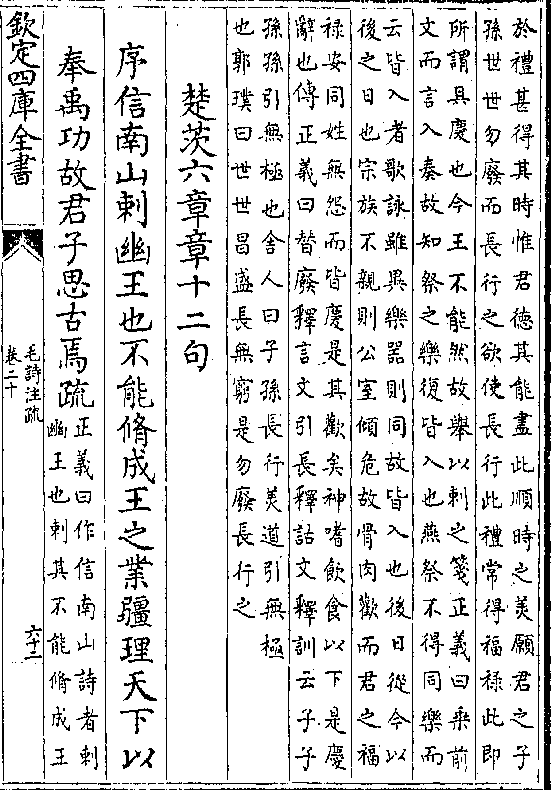 於禮甚得其時惟君德其能盡此順時之美願君之子
孫世世勿廢而長行之欲使長行此禮常得福禄此即
所謂具慶也今王不能然故舉以刺之箋正義曰乘前
文而言入奏故知祭之樂復皆入也燕祭不得同樂而
云皆入者歌詠雖異樂器則同故皆入也後日從今以
後之日也宗族不親則公室傾危故骨肉歡而君之福
禄安同姓無怨而皆慶是其歡矣神嗜飲食以下是慶
辭也傳正義曰替廢釋言文引長釋詁文釋訓云子子
孫孫引無極也舍人曰子孫長行美道引無極
也郭璞曰世世昌盛長無窮是勿廢長行之
楚茨六章章十二句
序信南山刺幽王也不能脩成王之業疆理天下以
奉禹功故君子思古焉疏
正義曰作信南山詩者刺
幽王也刺其不能脩成王
欽定四庫全書
毛詩注疏
卷二十
六十二